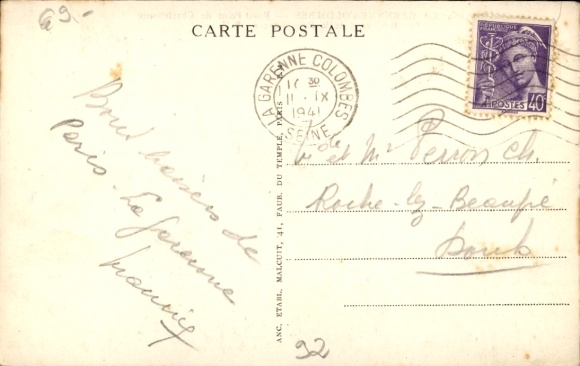 69-
CARTE POSTALE
LA GARENNE COLOMBES
16 30
11 IX
1941
SEINE
RÉPUBLIQUE FRANÇAISE
POSTES
40c
Bons baisers de
Paris - La Garenne
Mme et Mr Perron Ch.
Roche-lez-Beaupré
Doubs
ANC. ETABL. MALCUIT, 41, FAUB. DU TEMPLE, PARIS
92